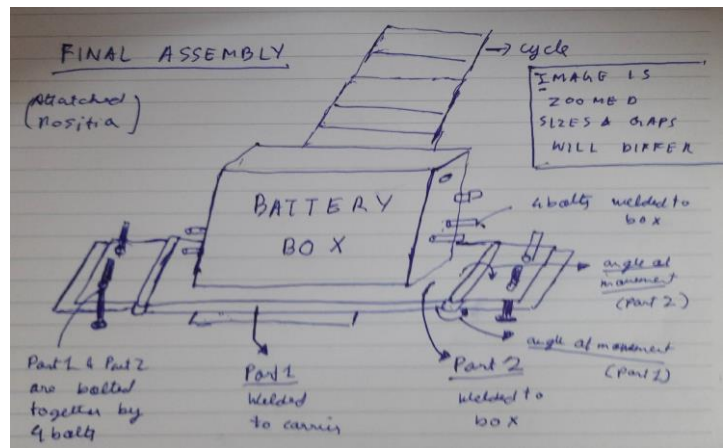 FINAL ASSEMBLY
(Attatched
Positia)
→ cycle
IMAGE IS
ZOOMED
SIZES & GAPS
WILL DIFFER
BATTERY
BOX
4 bolts welded to
box
angle of
movement
(Part 2)
angle of movement
(Part 1)
Part 1 & Part 2
are bolted
together by
4 bolts
Part 1
Welded
to carrier
Part 2
Welded to
box